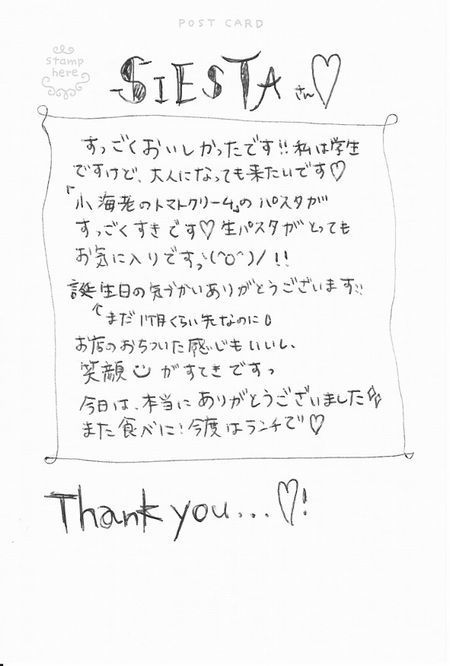 POST CARD
stamp
here
SIESTAさん♡
すっごくおいしかったです!!私は学生
ですけど、大人になっても来たいです♡
「小海老のトマトクリーム」のパスタが
すっごくすきです♡生パスタがとっても
お気に入りですっヽ(^o^)/!!
誕生日の気づかいありがとうございます!!
↑まだ1ヶ月くらい先なのに
お店のおちついた感じもいいし、
笑顔がすてきですっ
今日は、本当にありがとうございました
また食べに!今度はランチで♡
Thank you...♡!